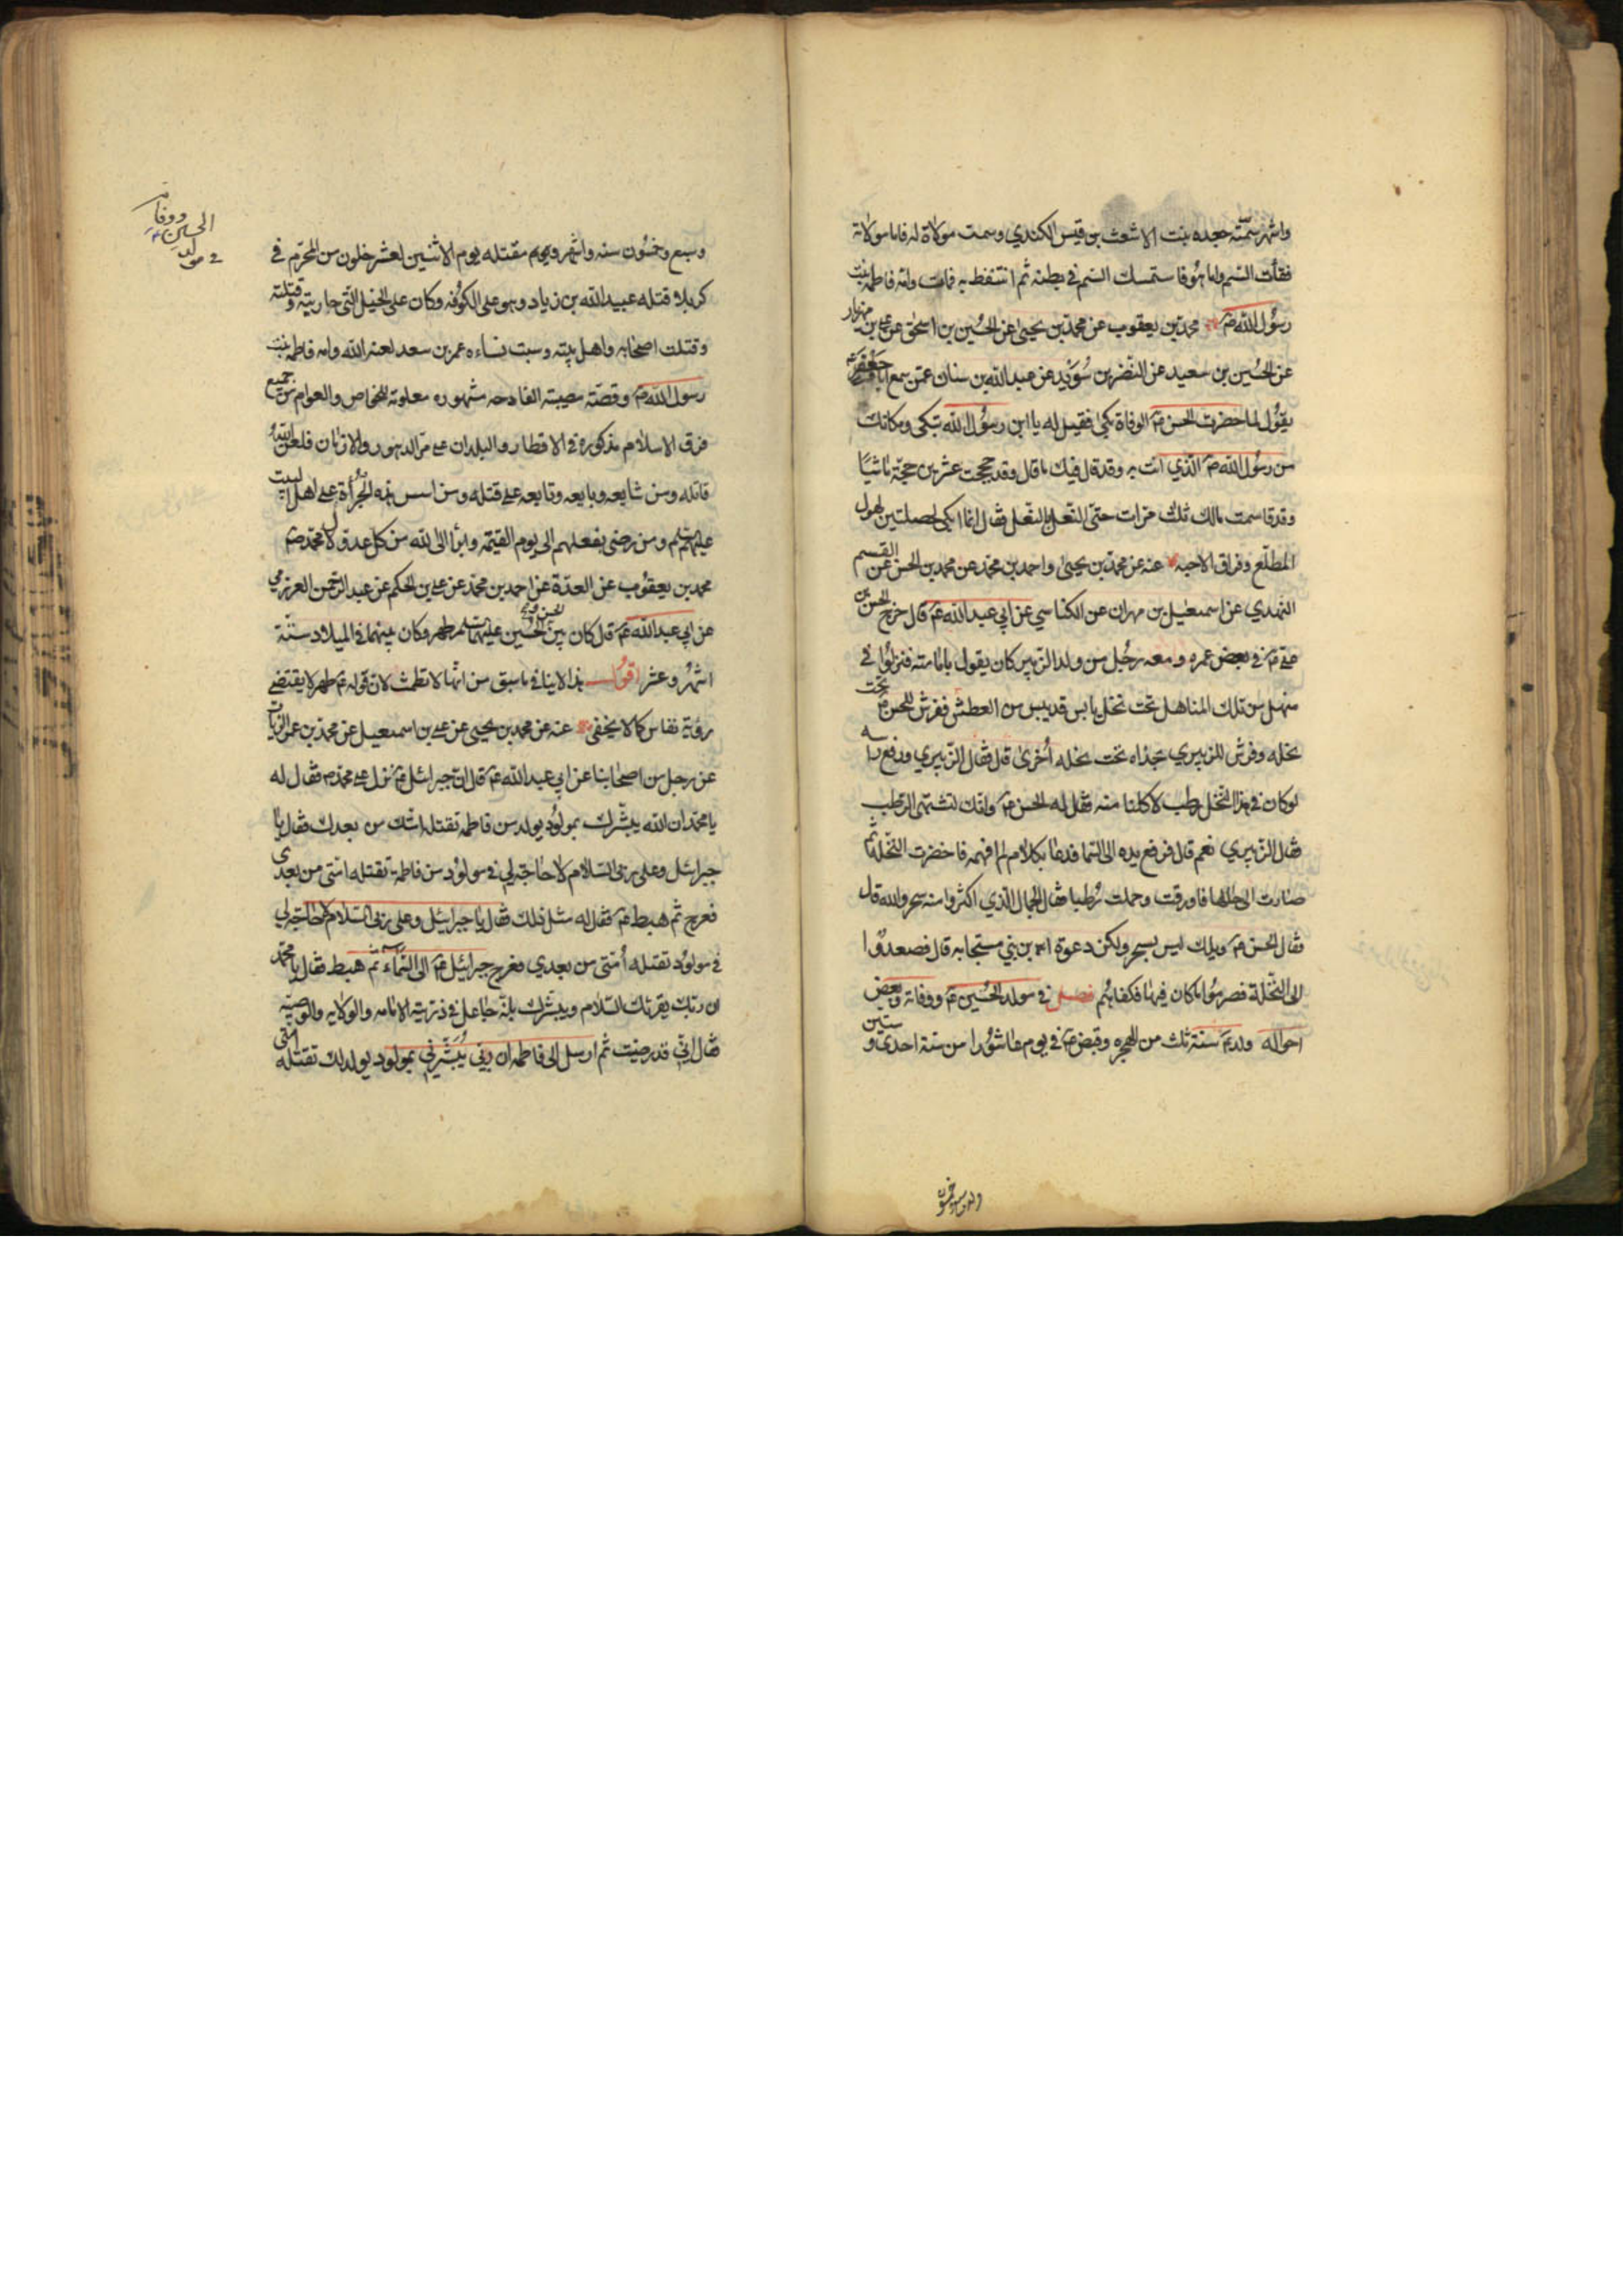 واشهر سمّته جعده بنت الاشعث بن قيس الكندي وسمت مولاة له فاما مولاته
فقأت السم واما هو فاستمسك السم في بطنه ثم انتفط به فمات وامه فاطمه بنت
رسول الله ص محمد بن يعقوب عن محمد بن يحيى عن الحسين بن اسحق عن علي بن مهزيار
عن الحسين بن سعيد عن النضر بن سويد عن عبد الله بن سنان عمن سمع ابا جعفر ع
يقول لما حضرت الحسن ع الوفاة بكى فقيل له يا ابن رسول الله تبكى ومكانك
من رسول الله ص الذي انت به وقد قل فيك ما قال وقد حججت عشرين حجّة ماشيًا
وقد قاسمت مالك ثلث مرات حتى النعل بالنعل فقال انما ابكى لخصلتين لهول
المطلع وفراق الاحبه عنه عن محمد بن يحيى واحمد بن محمد عن محمد بن الحسن عن القسم
النهدي عن اسمعيل بن مهران عن الكناسي عن ابي عبد الله ع قال خرج الحسن بن
علي ع في بعض عمره ومعه رجل من ولد الزبير كان يقول بامامته فنزلوا في
منهل من تلك المناهل تحت نخل يابس قد يبس من العطش ففرش للحسن ع تحت
نخله وفرش للزبيري بحذاه تحت نخله أخرى قل فقال الزبيري ورفع راسه
لو كان في هذا النخل رطب لاكلنا منه فقال له الحسن ع وانك لتشتهى الرطب
فقال الزبيري نعم قال فرفع يده الى السما فدعا بكلام لم افهمه فاخضرت النخلة ثم
صارت الى حالها فاورقت وحملت رُطبا فقال الجمال الذي اكتروا منه سحر والله قل
فقال الحسن ع ويلك ليس بسحر ولكن دعوة ابن نبي مستجابه قال فصعدوا
الى النخلة فصرموا ما كان فيها فكفاهُم فصل في مولد الحُسين ع ووفاته وبعض
احواله ولد ع سنة ثلث من الهجره وقبض ع في يوم عاشورا من سنة احدى و ستين
وله
في مولد
الحسين ع
ووفاته
وسبع وخمسون سنه واشهر ويوم مقتله يوم الاثنين لعشر خلون من المحرّم في
كربلا قتله عبيد الله بن زياد وهو على الكوفه وكان على الخيل التي حاربته وقتلته
وقتلت اصحابه واهل بيته وسبت نساءه عمر بن سعد لعنه الله وامه فاطمه بنت
رسول الله ص وقصّة مصيبته الفادحه مشهوره معلومة للخاص والعوام من جميع
فرق الاسلام مذكوره في الاقطار والبلدان على مرّ الدهور والازمان فلعن الله
قاتله ومن شايعه وبايعه وتابعه على قتله ومن اسس هذه الجُرأة على اهل البيت
عليهم سلم ومن رضى بفعلهم الى يوم القيمة وابرأ الى الله من كل عدوّ لال محمد ص
محمد بن يعقوب عن العدّة عن احمد بن محمد عن علي بن الحكم عن عبد الرحمن العرزمي
عن ابي عبد الله ع قل كان بين الحسن و الحسين عليهما سلم طهر وكان بينهما في الميلاد ستّة
اشهُر وعشر اقول هذا لا ينافي ما سبق من انها لا تطمث لان قوله ع طهر لا يقتضى
رؤية نفاس كما لا يخفى عنه عن محمد بن يحيى عن علي بن اسمعيل عن محمد بن عمر الزيات
عن رجل من اصحابنا عن ابي عبد الله ع قل ان جبرائل ع نزل على محمد ص فقال له
يا محمد ان الله يبشّرك بمولود يولد من فاطمه تقتله امّتك من بعدك فقال يا
جبرائل وعلى ربى السّلام لا حاجة لي في مولود من فاطمة تقتله امّتى من بعدى
فعرج ثم هبط ع فقال له مثل ذلك فقال يا جبرائيل وعلى ربّى السّلام لا حاجة لي
في مولود تقتله أمتى من بعدي فعرج جبرائيل ع الى السّماء ثم هبط فقال يا محمّد
ان ربّك يقرئك السّلام ويبشّرك بانّه جاعل في ذريته الامامه والولايه والوصيّه
فقال انّي قد رضيت ثم ارسل الى فاطمه ان ربّى يُبَشّرني بمولود يولد لك تقتله امّتى